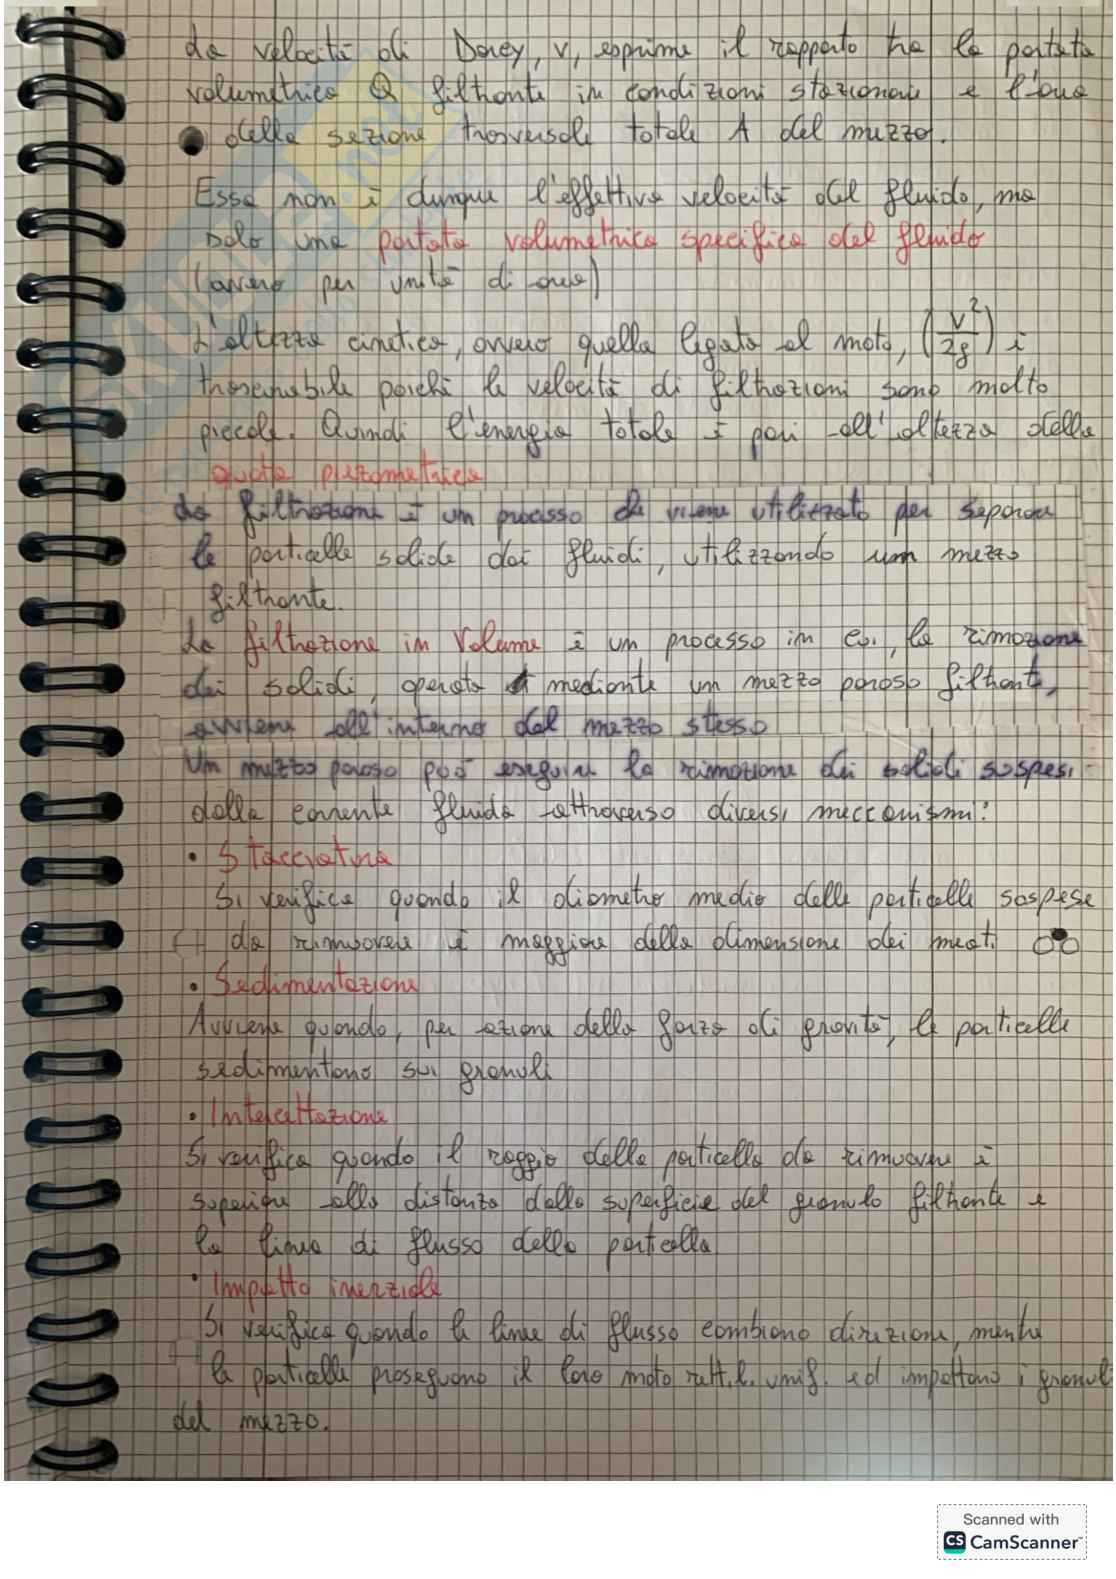 La velocità di Darcy, v, esprime il rapporto tra la portata
volumetrica Q filtrante in condizioni stazionarie e l'area
della sezione trasversale totale A del mezzo.
Essa non è dunque l'effettiva velocità del fluido, ma
solo una portata volumetrica specifica del fluido
(ovvero per unità di area)
L'altezza cinetica, ovvero quella legata al moto, (v²/2g) è
trascurabile poiché le velocità di filtrazioni sono molto
piccole. Quindi l'energia totale è pari all'altezza della
quota piezometrica
La filtrazione è un processo che viene utilizzato per separare
le particelle solide dai fluidi, utilizzando un mezzo
filtrante.
La filtrazione in Volume è un processo in cui, la rimozione
dei solidi, operata mediante un mezzo poroso filtrante,
avviene all'interno del mezzo stesso
Un mezzo poroso può eseguire la rimozione dei solidi sospesi
dalla corrente fluida attraverso diversi meccanismi:
• Stacciatura
Si verifica quando il diametro medio delle particelle sospese
da rimuovere è maggiore della dimensione dei meati
• Sedimentazione
Avviene quando, per azione della forza di gravità, le particelle
sedimentano sui granuli
• Intercettazione
Si verifica quando il raggio della particella da rimuovere è
superiore alla distanza dalla superficie del granulo filtrante e
la linea di flusso della particella
• Impatto inerziale
Si verifica quando le linee di flusso cambiano direzione, mentre
le particelle proseguono il loro moto rett.l. unif. ed impattano i granuli
del mezzo.
SKUOLA.net
Scanned with
CS CamScanner